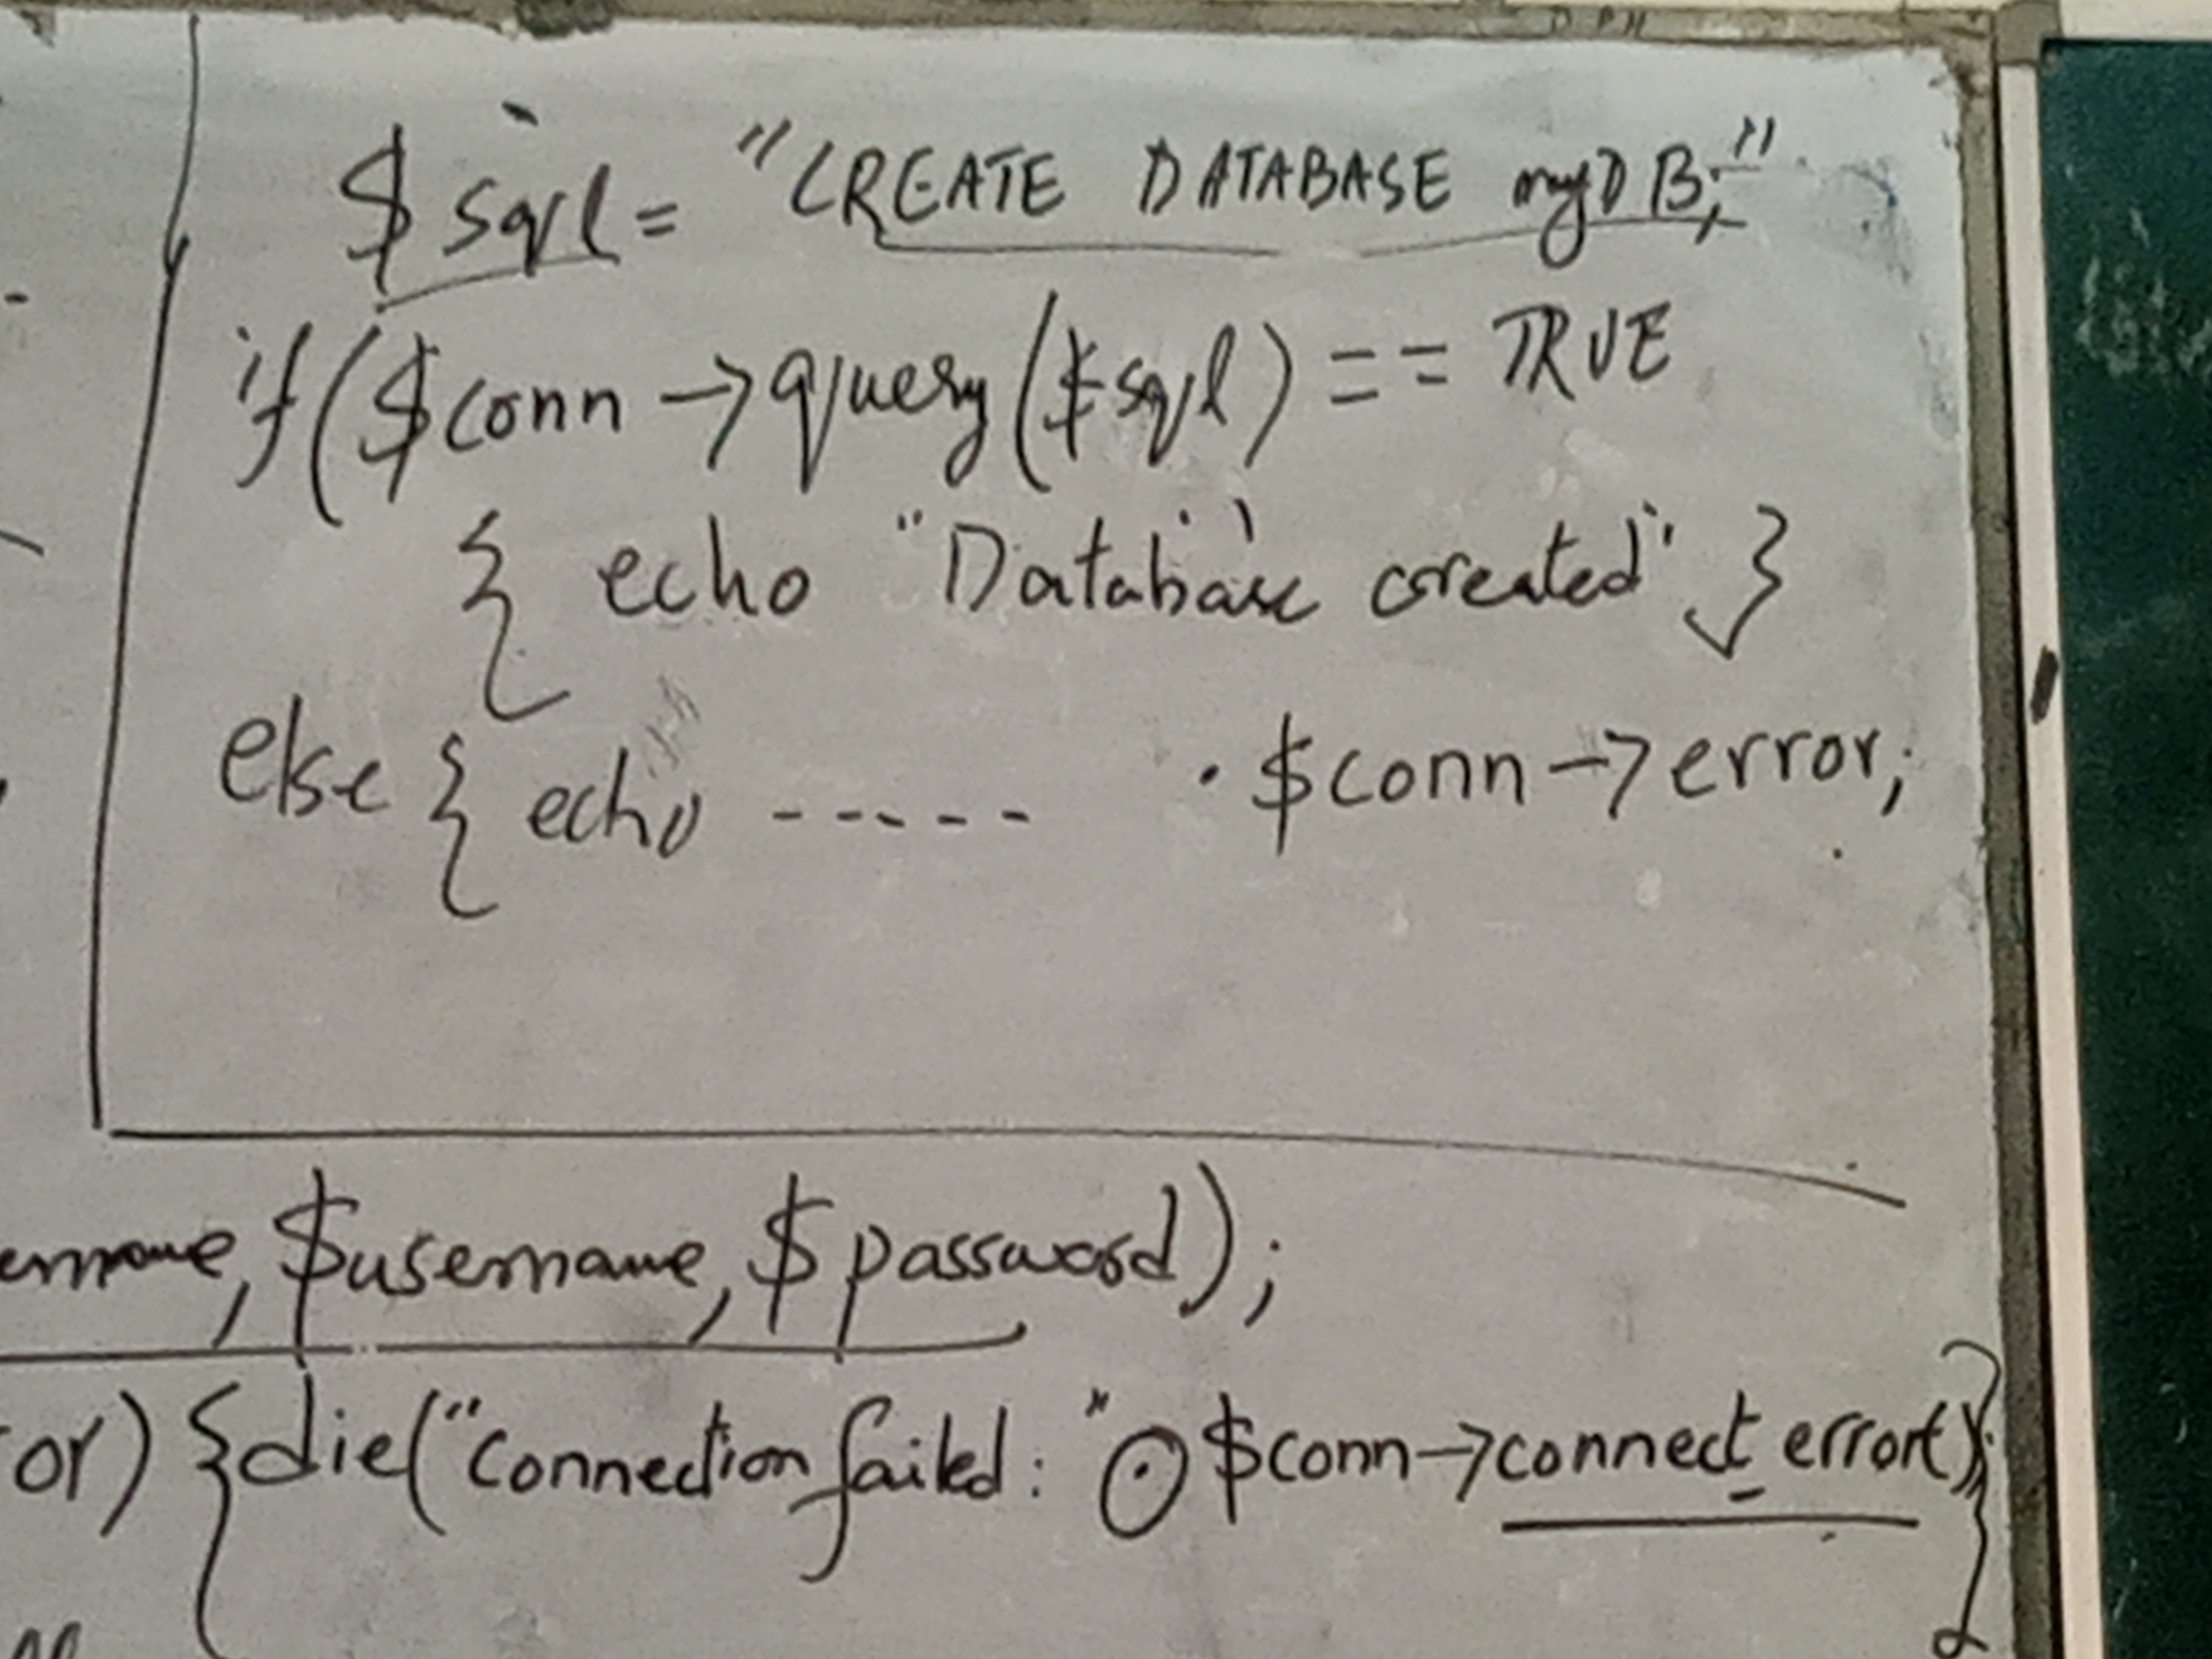 $sql = "CREATE DATABASE myDB;"
if($conn->query($sql) == TRUE
{ echo "Database created" }
else { echo ----- . $conn->error;
ername, $username, $password);
or) {die("Connection failed: " . $conn->connect_error);}